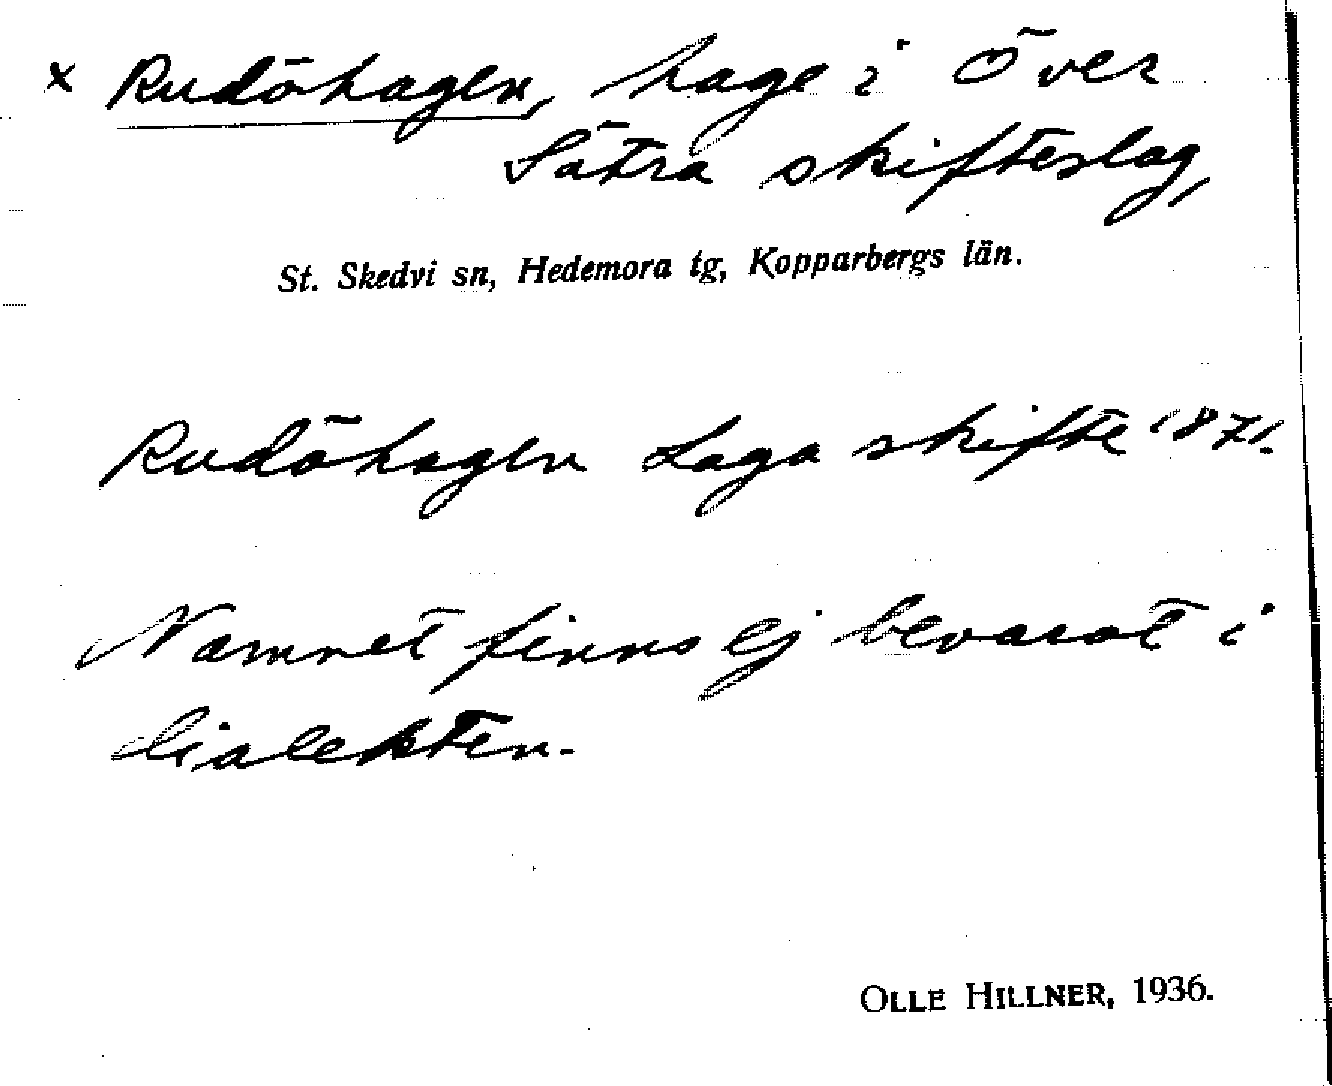 x Rudöhagen, hage i Över
Sätra skifteslag,
St. Skedvi sn, Hedemora tg, Kopparbergs län.
Rudöhagen Laga skifte 1871.
Namnet finns ej bevarat i
dialekten.
OLLE HILLNER, 1936.